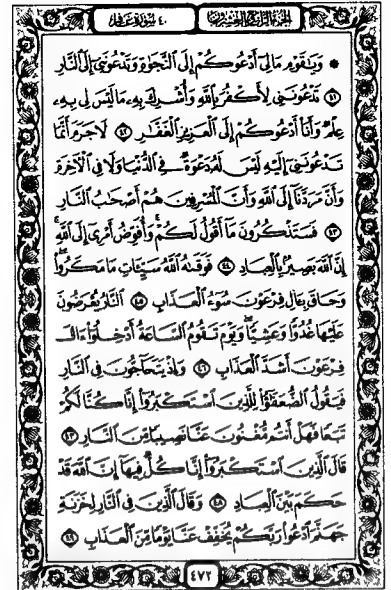 الجزء الرابع والعشرون
٤٠ سورة غافر
۞ وَيَٰقَوْمِ مَالِىٓ أَدْعُوكُمْ إِلَى ٱلنَّجَوٰةِ وَتَدْعُونَنِىٓ إِلَى ٱلنَّارِ
٤١ تَدْعُونَنِى لِأَكْفُرَ بِٱللَّهِ وَأُشْرِكَ بِهِۦ مَا لَيْسَ لِى بِهِۦ
عِلْمٌ وَأَنَا۠ أَدْعُوكُمْ إِلَى ٱلْعَزِيزِ ٱلْغَفَّٰرِ ٤٢ لَا جَرَمَ أَنَّمَا
تَدْعُونَنِىٓ إِلَيْهِ لَيْسَ لَهُۥ دَعْوَةٌ فِى ٱلدُّنْيَا وَلَا فِى ٱلْءَاخِرَةِ
وَأَنَّ مَرَدَّنَآ إِلَى ٱللَّهِ وَأَنَّ ٱلْمُسْرِفِينَ هُمْ أَصْحَٰبُ ٱلنَّارِ
٤٣ فَسَتَذْكُرُونَ مَآ أَقُولُ لَكُمْ وَأُفَوِّضُ أَمْرِىٓ إِلَى ٱللَّهِ
إِنَّ ٱللَّهَ بَصِيرٌۢ بِٱلْعِبَادِ ٤٤ فَوَقَىٰهُ ٱللَّهُ سَيِّـَٔاتِ مَا مَكَرُوا۟
وَحَاقَ بِـَٔالِ فِرْعَوْنَ سُوٓءُ ٱلْعَذَابِ ٤٥ ٱلنَّارُ يُعْرَضُونَ
عَلَيْهَا غُدُوًّا وَعَشِيًّا وَيَوْمَ تَقُومُ ٱلسَّاعَةُ أَدْخِلُوٓا۟ ءَالَ
فِرْعَوْنَ أَشَدَّ ٱلْعَذَابِ ٤٦ وَإِذْ يَتَحَآجُّونَ فِى ٱلنَّارِ
فَيَقُولُ ٱلضُّعَفَٰٓؤُا۟ لِلَّذِينَ ٱسْتَكْبَرُوٓا۟ إِنَّا كُنَّا لَكُمْ
تَبَعًا فَهَلْ أَنتُم مُّغْنُونَ عَنَّا نَصِيبًا مِّنَ ٱلنَّارِ ٤٧
قَالَ ٱلَّذِينَ ٱسْتَكْبَرُوٓا۟ إِنَّا كُلٌّ فِيهَآ إِنَّ ٱللَّهَ قَدْ
حَكَمَ بَيْنَ ٱلْعِبَادِ ٤٨ وَقَالَ ٱلَّذِينَ فِى ٱلنَّارِ لِخَزَنَةِ
جَهَنَّمَ ٱدْعُوا۟ رَبَّكُمْ يُخَفِّفْ عَنَّا يَوْمًا مِّنَ ٱلْعَذَابِ ٤٩
٤٧٢